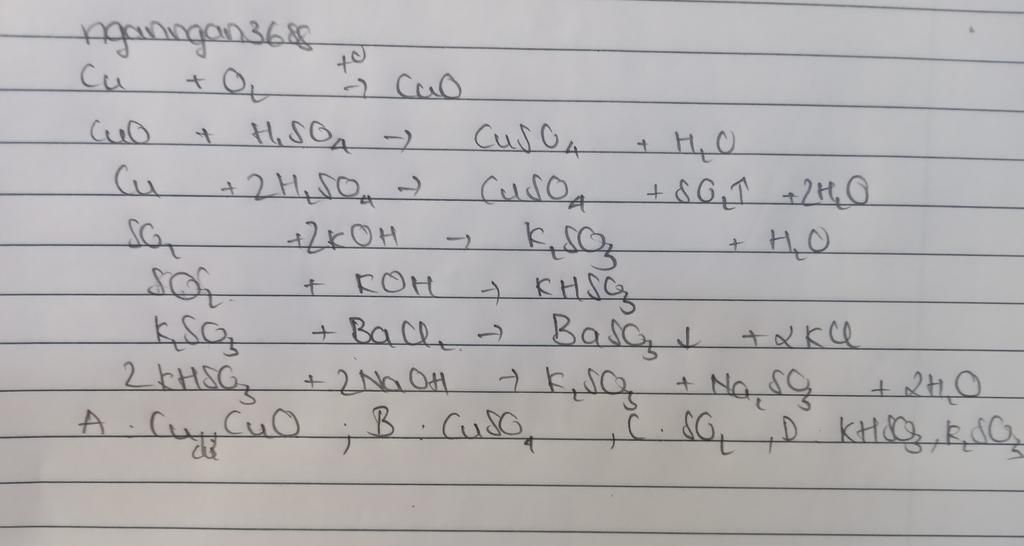 nganngan3688
Cu + O₂ →(t⁰) CuO
CuO + H₂SO₄ → CuSO₄ + H₂O
Cu + 2H₂SO₄ → CuSO₄ + SO₂↑ + 2H₂O
SO₂ + 2KOH → K₂SO₃ + H₂O
SO₂ + KOH → KHSO₃
K₂SO₃ + BaCl₂ → BaSO₃ ↓ + 2KCl
2KHSO₃ + 2NaOH → K₂SO₃ + Na₂SO₃ + 2H₂O
A : Cu dư, CuO ; B : CuSO₄ , C : SO₂ , D : KHSO₃, K₂SO₃